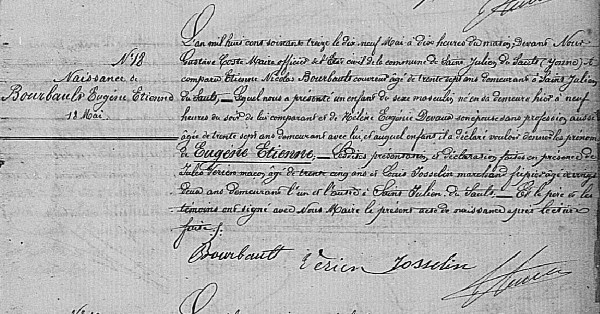 N° 18
Naissance de
Bourbault Eugène Etienne
18 Mai
L'an mil huit cent soixante treize le dix neuf Mai à dix heures du matin, devant Nous
Gustave Coste Maire officier de l'Etat civil de la commune de Saint Julien du Sault, (Yonne) a
comparu Etienne Nicolas Bourbault couvreur âgé de trente sept ans demeurant à Saint Julien
du Sault, lequel nous a présenté un enfant du sexe masculin né en sa demeure hier à neuf
heures du soir de lui comparant et de Hélène Eugénie Devaud son épouse sans profession, aussi
âgée de trente sept ans demeurant avec lui, et auquel enfant il a déclaré vouloir donner les prénoms
de Eugène Etienne, Lesdites présentation et déclaration faites en présence de
Jules Verien maçon, âgé de trente cinq ans et Louis Josselin marchand fripier, âgé de vingt
deux ans demeurant l'un et l'autre à Saint Julien du Sault. Et le père et les
témoins ont signé avec Nous Maire le présent acte de naissance après lecture
faite /.
Bourbault Verien Josselin